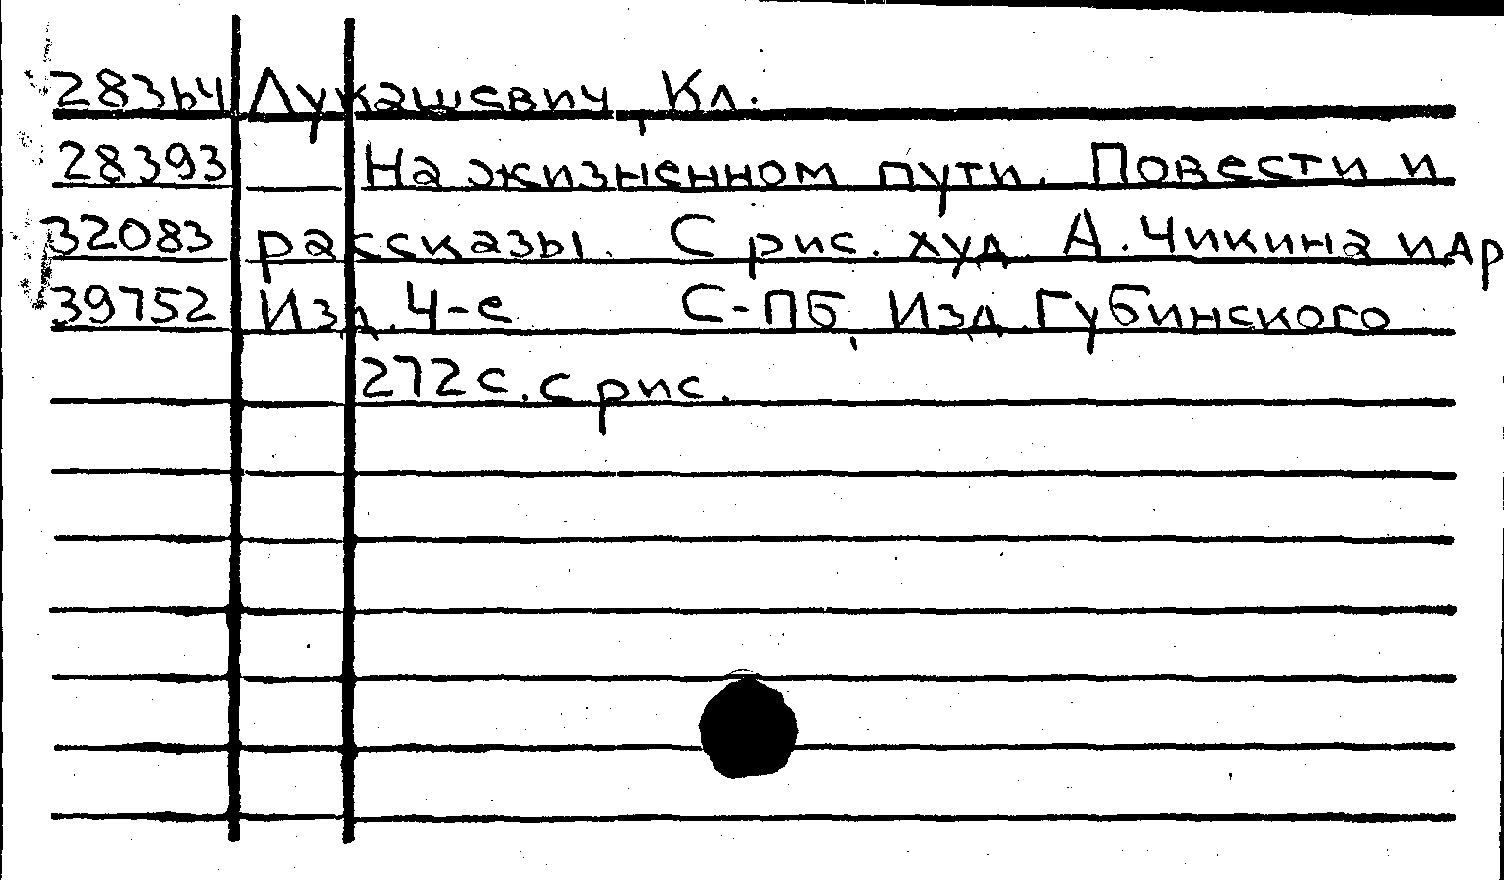 28364 Лукашевич, Кл.
28393 На жизненном пути. Повести и
32083 рассказы. С рис. худ. А. Чикина и др
39752 Изд. 4-е С-ПБ, Изд. Губинского
272 с. с рис.